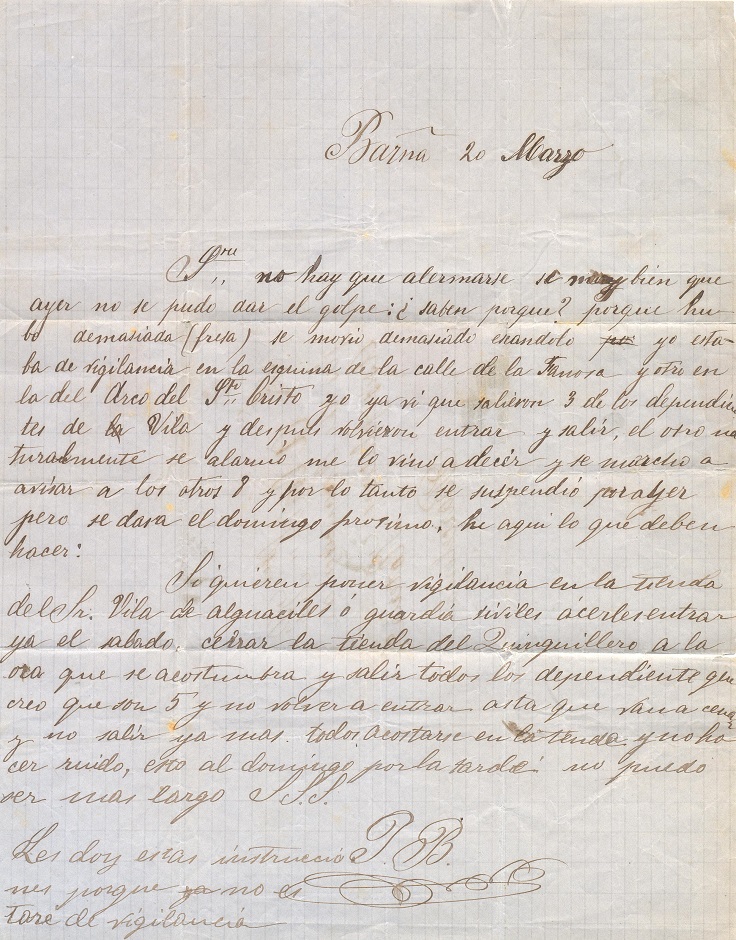 Barña 20 Marzo
Sres no hay que alermarse se muy bien que
ayer no se pudo dar el golpe: ¿ saben porque? porque hu-
bo demasiada (fresa) se movió demasiado exandolo yo esta-
ba de vigilancia en la esquina de la calle de la Tanora y otro en
la del Arco del Sto Cristo yo ya vi que salieron 3 de los dependien
tes de la Vila y despues volvieron entrar y salir, el otro na
turalmente se alarmó me lo vino a decir y se marchó a
avisar a los otros 8 y por lo tanto se suspendió por ayer
pero se dara el domingo prosimo, he aqui lo que deben
hacer:
Si quieren poner vigilancia en la tienda
del Sr. Vila de alguaciles ó guardia siviles ácerles entrar
ya el sabado, cerrar la tienda del Quinquillero a la
ora que se acostumbra y salir todos los dependiente que
creo que son 5 y no volver a entrar asta que van a cenar
y no salir ya mas. todos acostarse en la tienda y no ha
cer ruido, esto al domingo por la tarde no puedo
ser mas largo S.S.S.
P. B.
Les doy estas instruccio
nes porque ya no es
taré de vigilancia